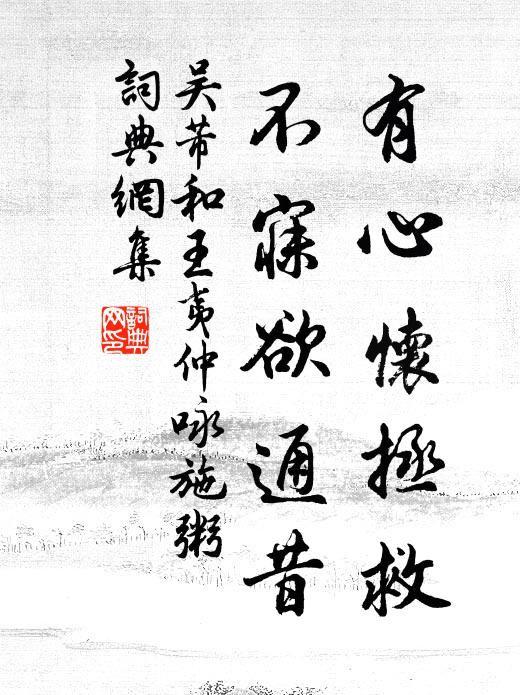 有心懷拯救
不寐欲通昔
吴芾和王夷仲咏施粥
詞典網集
詞典
网印